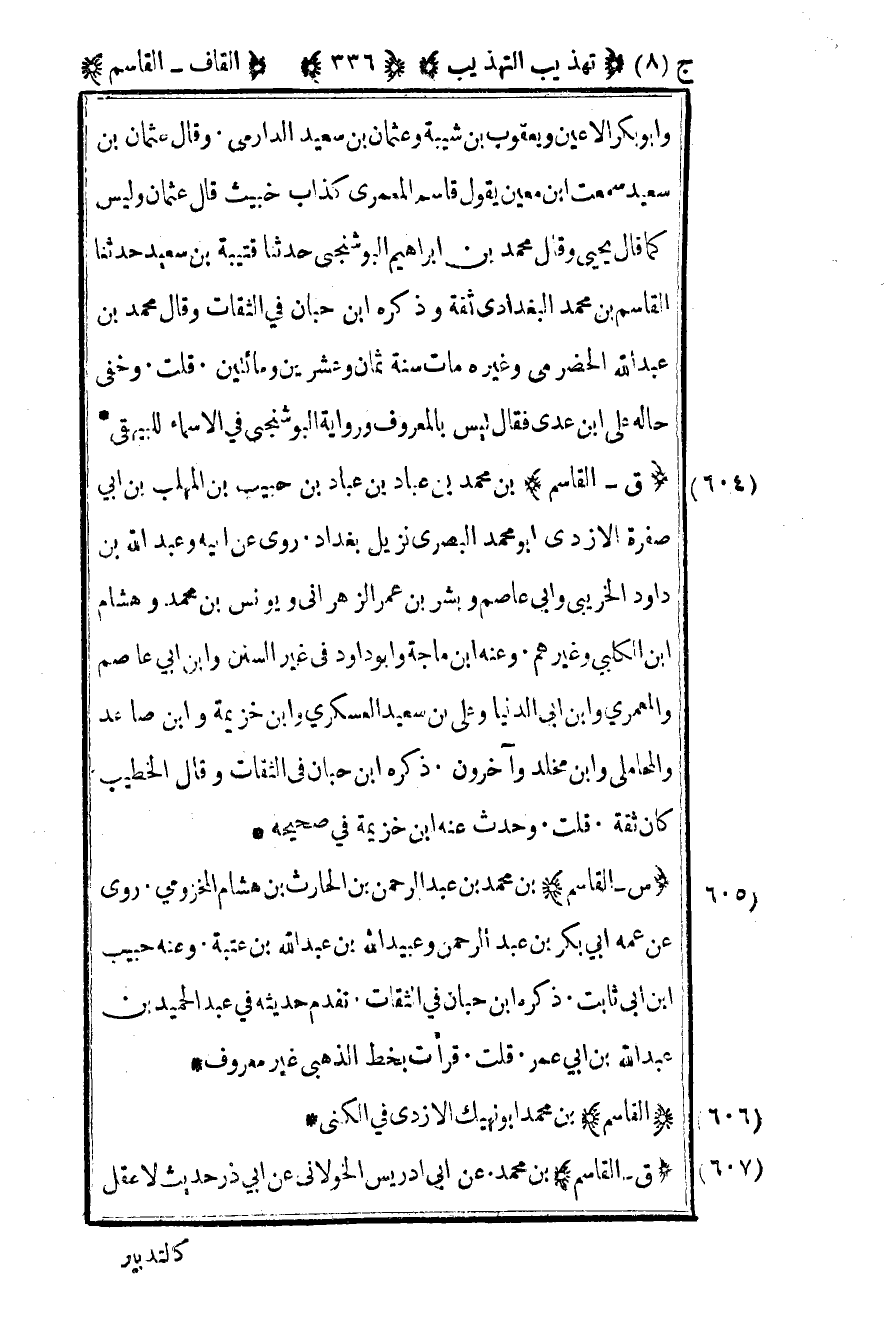 ج (٨) ﴿ تهذيب التهذيب ﴾ ﴿ ٣٣٦ ﴾ ﴿ القاف ـ القاسم ﴾
وابوبكر الاعين ويعقوب بن شيبة وعثمان بن سعيد الدارمى · وقال عثمان بن
سعيد سمعت ابن معين يقول قاسم المعمرى كذاب خبيث قال عثمان وليس
كما قال يحيى وقال محمد بن ابراهيم البوشنجى حدثنا قتيبة بن سعيد حدثنا
القاسم بن محمد البغدادى ثقة و ذكره ابن حبان في الثقات وقال محمد بن
عبدالله الحضرمى وغيره مات سنة ثمان وعشرين ومائتين · قلت · وخفى
حاله على ابن عدى فقال ليس بالمعروف ورواية البوشنجى في الاسماء للبيهقى *
(٦٠٤) ﴿ ق ـ القاسم ﴾ بن محمد بن عباد بن عباد بن حبيب بن المهلب بن ابي
صفرة الازدى ابو محمد البصرى نزيل بغداد · روى عن ابيه وعبد الله بن
داود الخريبى وابي عاصم و بشر بن عمر الزهرانى و يونس بن محمد و هشام
ابن الكلبي وغيرهم · وعنه ابن ماجة وابوداود فى غير السنن وابن ابي عاصم
والمعمري وابن ابى الدنيا وعلى بن سعيد العسكري وابن خزيمة و ابن صاعد
والمحاملى وابن مخلد وآخرون · ذكره ابن حبان فى الثقات و قال الخطيب
كان ثقة · قلت · وحدث عنه ابن خزيمة في صحيحه *
٦٠٥) ﴿ س ـ القاسم ﴾ بن محمد بن عبدالرحمن بن الحارث بن هشام المخزومي · روى
عن عمه ابي بكر بن عبد الرحمن وعبيدالله بن عبدالله بن عتبة · وعنه حبيب
ابن ابى ثابت · ذكره ابن حبان في الثقات · تقدم حديثه في عبد الحميد بن
عبدالله بن ابي عمر · قلت · قرأت بخط الذهبى غير معروف *
(٦٠٦) ﴿ القاسم ﴾ بن محمد ابونهيك الازدى في الكنى *
(٦٠٧) ﴿ ق ـ القاسم ﴾ بن محمد · عن ابى ادريس الخولانى عن ابي ذر حديث لاعقل
كالتدبير